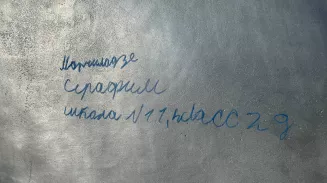 Моршиладзе
Серафим
школа N11, класс 2 д